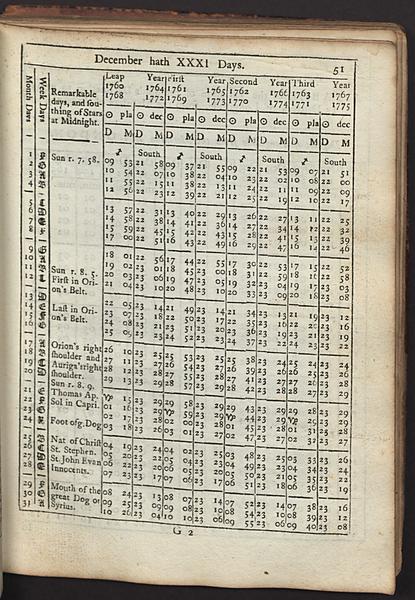 December hath XXXI Days. 51
Month Days
Week Days
Remarkable days, and southing of Stars at Midnight.
Leap Year First Year Second Year Third Year
1760 1764 1761 1765 1762 1766 1763 1767
1768 1772 1769 1773 1770 1774 1771 1775
☉ pla ☉ dec ☉ pla ☉ dec ☉ pla ☉ dec ☉ pla ☉ dec
D M D M D M D M D M D M D M D M
♐ South ♐ South ♐ South ♐ South
1 Sun r. 7. 58. 09 53 21 58 09 37 21 55 09 22 21 53 09 07 21 51
2 10 54 22 07 10 38 22 04 10 23 22 02 10 08 22 00
3 11 55 22 15 11 38 22 13 11 24 22 11 11 09 22 09
4 12 56 22 23 12 39 22 21 12 25 22 19 12 10 22 17
5 13 57 22 31 13 40 22 29 13 26 22 27 13 11 22 25
6 14 58 22 38 14 41 22 36 14 27 22 34 14 12 22 32
7 15 59 22 45 15 42 22 43 15 28 22 41 15 13 22 39
8 17 00 22 51 16 43 22 49 16 29 22 47 16 14 22 46
9 18 01 22 56 17 44 22 55 17 30 22 53 17 15 22 52
10 Sun r. 8. 5. 19 02 23 01 18 45 23 00 18 31 22 59 18 16 22 58
11 First in Ori- 20 03 23 06 19 47 23 05 19 32 23 04 19 17 23 03
12 on's Belt. 21 04 23 10 20 48 23 10 20 33 23 09 20 18 23 08
13 Last in Ori- 22 05 23 14 21 49 23 14 21 34 23 13 21 19 23 12
14 on's Belt. 23 07 23 18 22 50 23 17 22 35 23 16 22 20 23 16
15 24 08 23 21 23 51 23 20 23 36 23 19 23 21 23 19
16 25 09 23 23 24 52 23 23 24 37 23 22 24 23 23 22
17 Orion's right 26 10 23 25 25 53 23 25 25 38 23 24 25 24 23 24
18 shoulder and 27 11 23 27 26 54 23 27 26 39 23 26 26 25 23 26
19 Auriga's right 28 12 23 28 27 55 23 28 27 41 23 27 27 26 23 28
20 shoulder. 29 13 23 29 28 57 23 29 28 42 23 29 28 27 23 29
Sun r. 8. 9.
21 Thomas Ap. ♑ 15 23 29 29 58 23 29 29 43 23 29 29 28 23 29
22 Sol in Capri. 01 16 23 29 ♑ 59 23 29 ♑ 44 23 29 ♑ 29 23 29
23 02 17 23 28 02 00 23 28 01 45 23 28 01 31 23 28
24 Foot of g. Dog 03 18 23 26 03 01 23 27 02 47 23 27 02 32 23 27
25 Nat of Christ 04 19 23 24 04 02 23 25 03 48 23 25 03 33 23 26
26 St. Stephen. 05 20 23 22 05 04 23 23 04 49 23 23 04 34 23 24
27 St. John Evan 06 22 23 20 06 05 23 20 05 50 23 21 05 35 23 22
28 Innocents. 07 23 23 17 07 06 23 17 06 51 23 18 06 36 23 19
29 Mouth of the 08 24 23 13 08 07 23 14 07 52 23 14 07 38 23 16
30 great Dog or 09 25 23 09 09 08 23 10 08 54 23 10 08 39 23 12
31 Syrius. 10 26 23 04 10 10 23 06 09 55 23 06 09 40 23 08
G 2